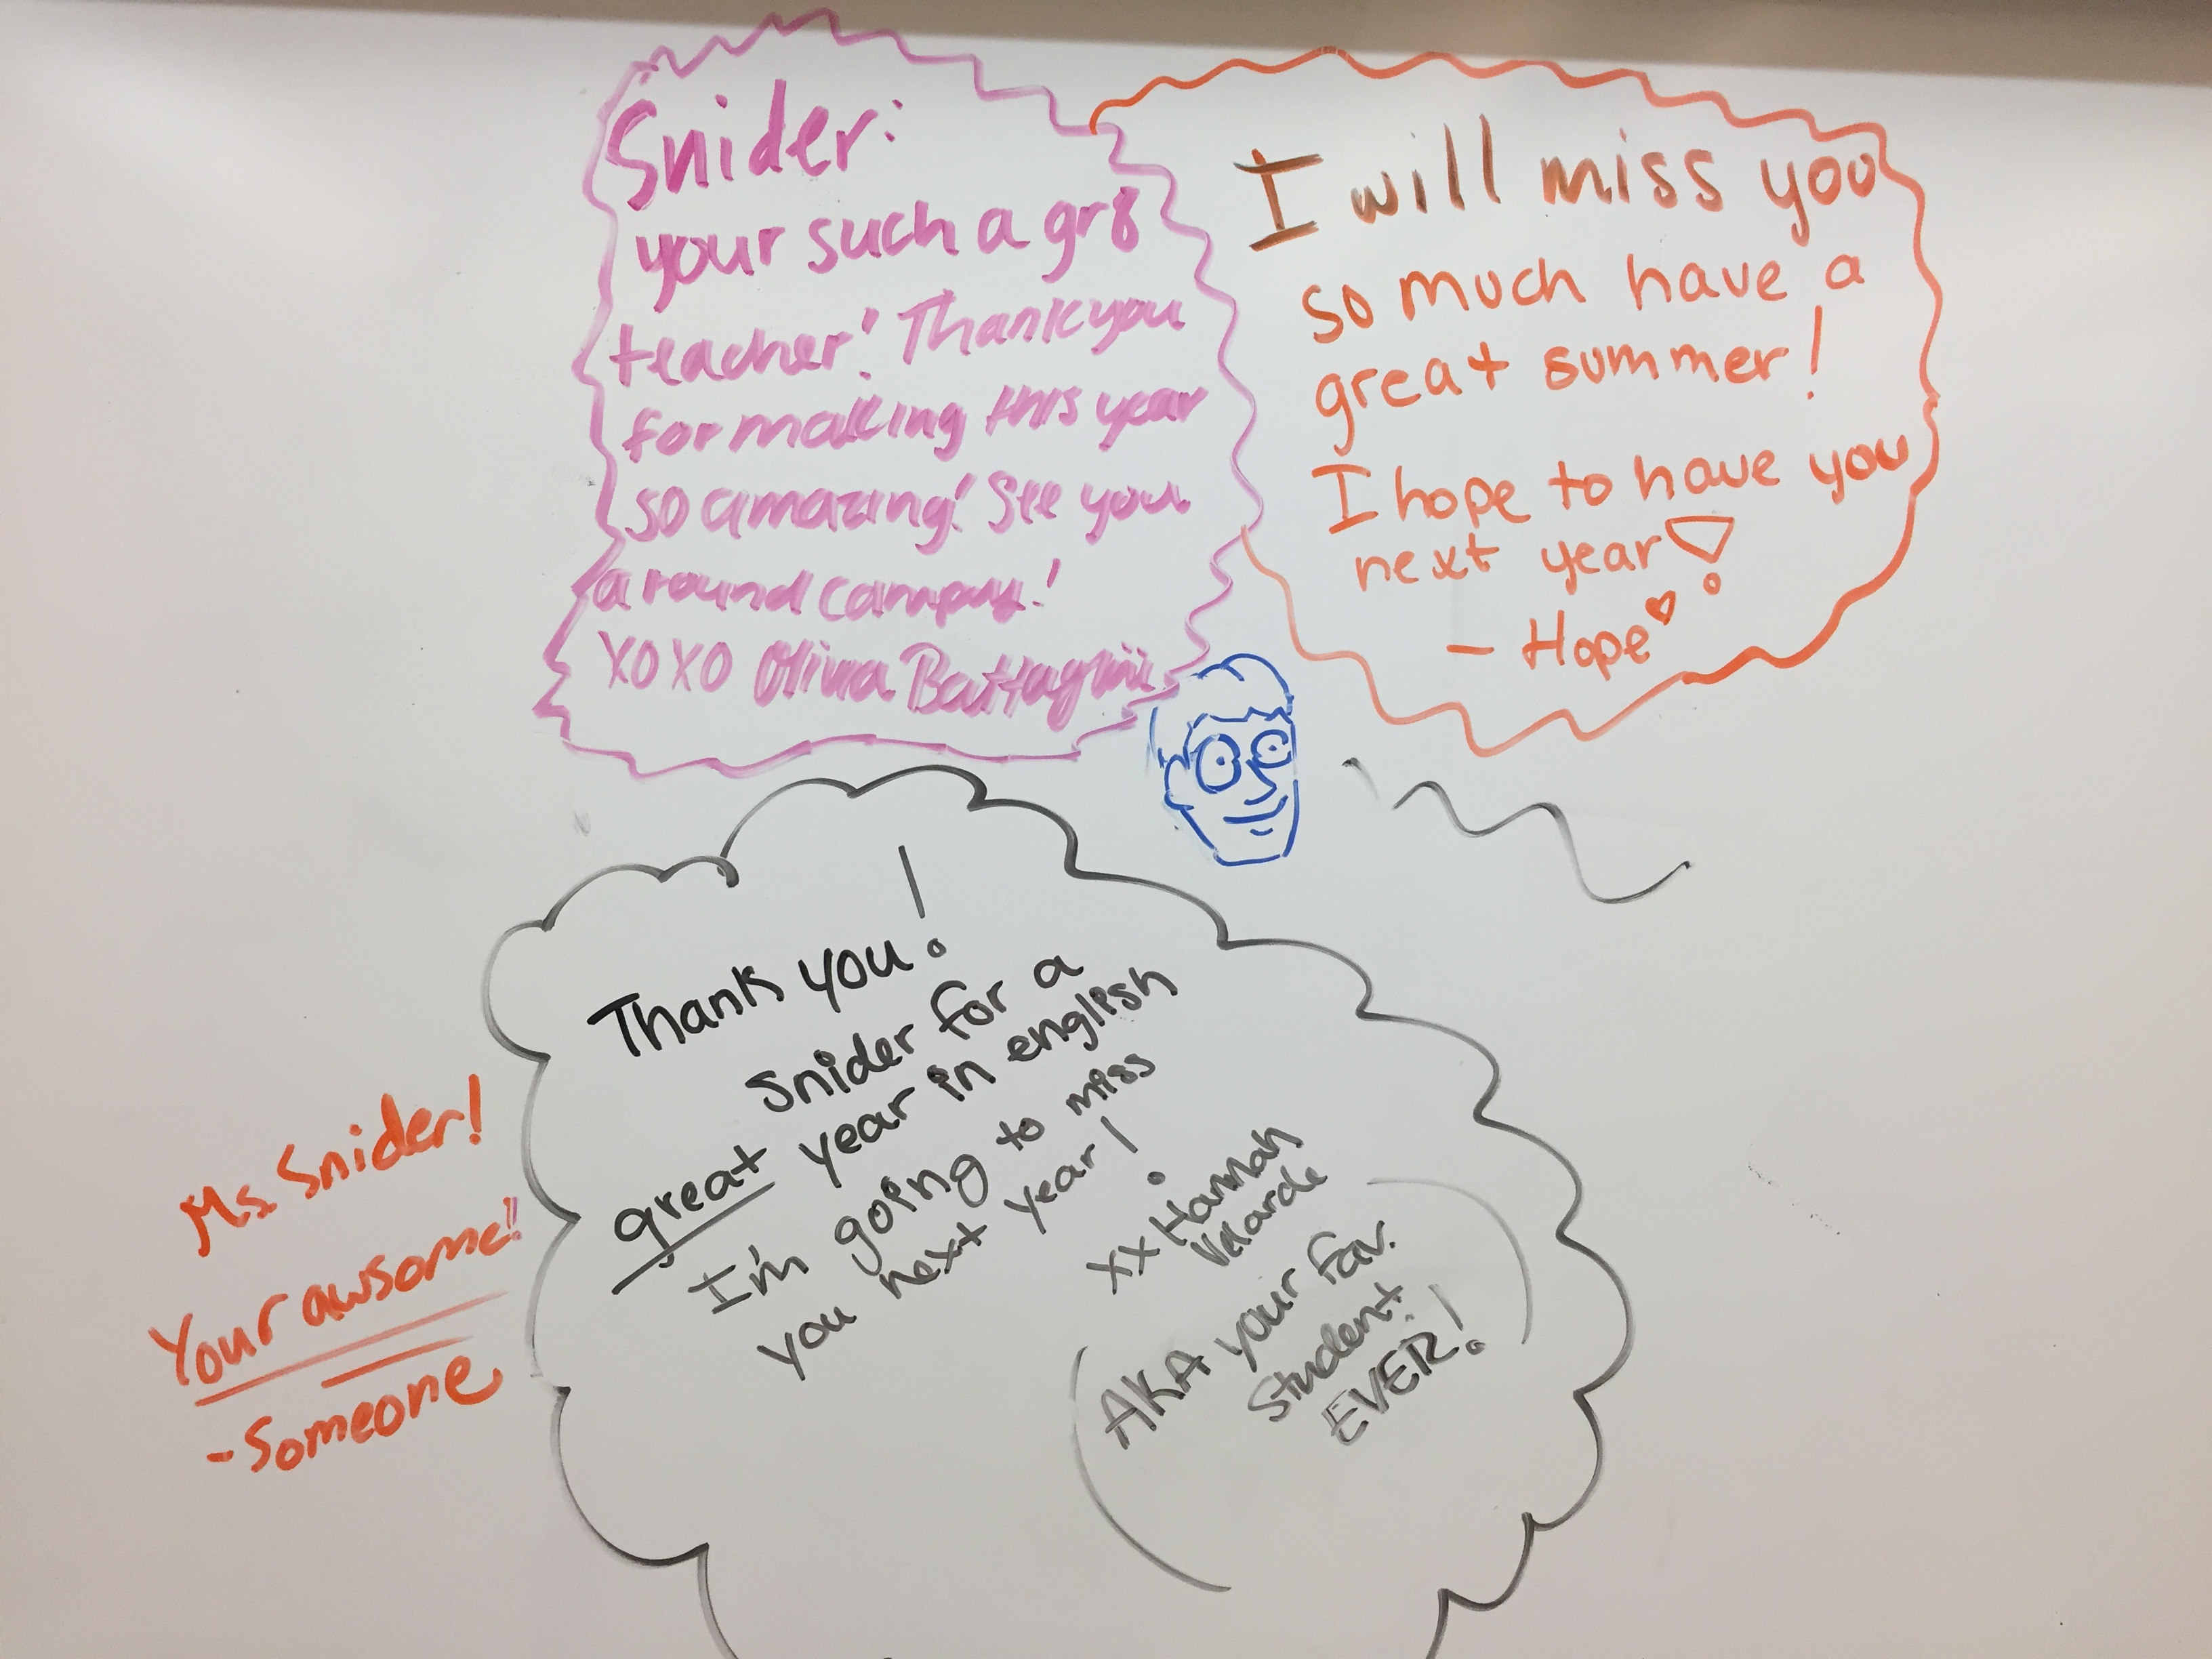 Snider:
your such a gr8
teacher! Thank you
for making this year
so amazing! See you
around campus!
XOXO Olivia
I will miss you
so much have a
great summer!
I hope to have you
next year!
- Hope
Thank you!
Snider for a
great year in english
I'm going to miss
you next year!
xx Hannah
Velarde
AKA your fav.
Student
EVER!
Ms. Snider!
Your awsome!!
- Someone